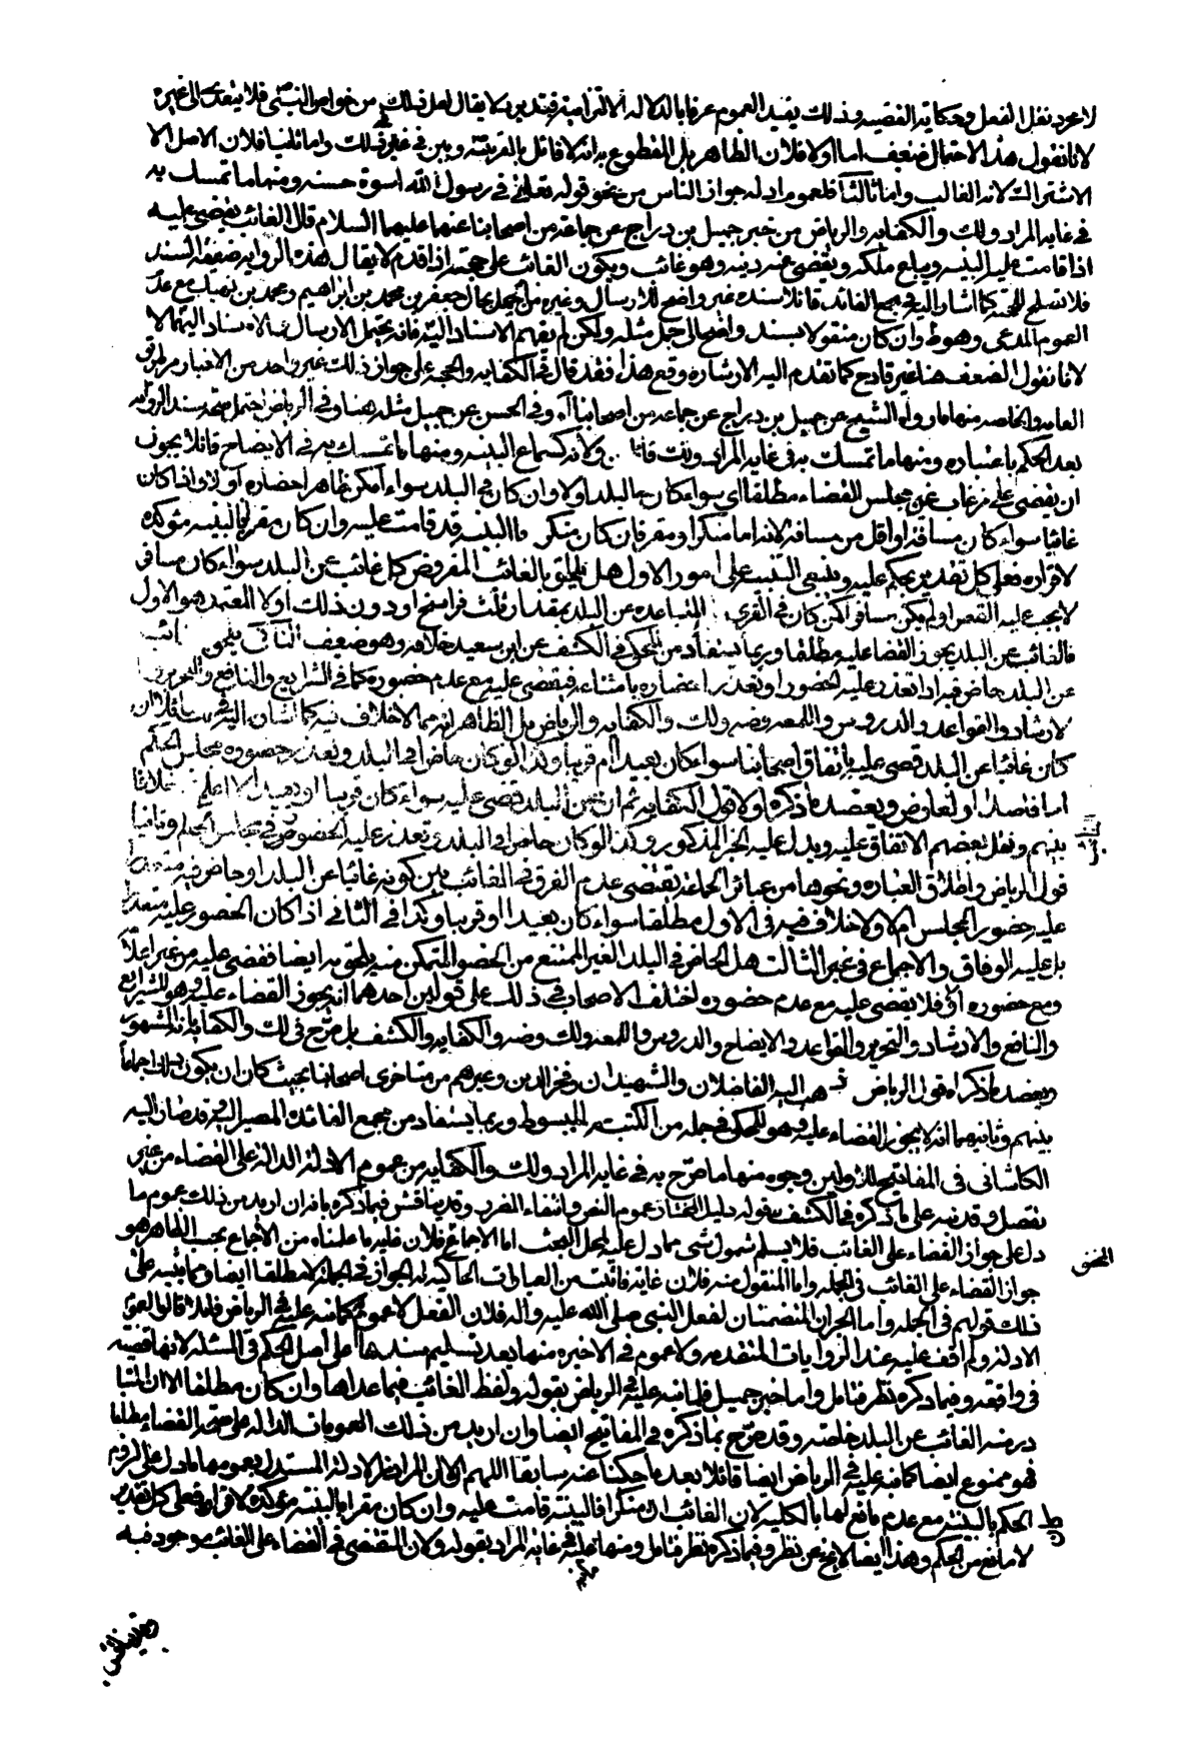 لا مجرد نقل الفعل وحكاية القضية وذلك يفيد العموم عرفا بالدلالة الالتزامية فتدبر لا يقال لعل ذلك من خواص النبي ص فلا يتعدى الى غيره
لانا نقول هذا الاحتمال ضعيف اما اولا فلان الظاهر بل المقطوع به انه لا قائل بالفرق بينه وبين غيره في ذلك واما ثانيا فلان الاصل الا
الاشتراك لانه الغالب واما ثالثا فلعموم ادلة جواز التاسى من نحو قوله تعالى في رسول الله اسوة حسنة ومنها ما تمسك به
في غاية المراد ولك والكفاية والرياض من خبر جميل بن دراج عن جماعة من اصحابنا عنهما عليهما السلام قال الغائب يقضى عليه
اذا قامت عليه البينة ويباع ماله ويقضى عنه دينه وهو غائب ويكون الغائب على حجته اذا قدم لا يقال هذه الرواية ضعيفة السند
فلا تصلح للحجية كما اشار اليه في مجمع الفائدة قائلا سنده غير واضح للارسال وغيره من الجهل بحال جعفر بن محمد بن ابراهيم ومحمد بن مع عدم
العموم المدعى وهو ظ وان كان منقولا بسند واضح الى جميل مثله ولكن لم يفهم الاسناد اليه فانه يحتمل الارسال والاسناد اليهما لا
لانا نقول الضعف هنا غير قادح كما تقدم اليه الاشارة وقع هذا فقد قال في الكفاية والحجة على جواز ذلك غير واحد من الاخبار من طريق
العامة والخاصة منها ما رواه الشيخ عن جميل بن دراج عن جماعة من اصحابنا آه وفي الحسن عن جميل مثله هنا وفي الرياض يحتمل صحة سند الرواية
بعد الحكم باعتباره ومنها ما تمسك به في غاية المراد ولك قائلا ولانه كسماع البينة ومنها ما تمسك به في الايضاح قائلا يجوز
ان يقضى على من غاب عن مجلس القضاء مطلقا اى سواء كان بالبلد اولا وان كان في البلد سواء امكن ظاهرا احضاره اولا واذا كان
غائبا سواء كان مسافة او اقل من مسافة لانه اما منكر او مقر فان كان منكرا فالبينة قد قامت عليه وان كان مقرا فالبينة مؤكدة
لاقراره فعلى كل تقدير يحكم عليه وينبغى التنبيه على امور الاول هل يلحق بالغائب المفروض كل غائب عن البلد سواء كان مسافرا
لا يجب عليه القصر او لم يكن مسافرا كمن كان في القرى المتباعدة عن البلد بمقدار ثلث فراسخ او دون ذلك اولا المعتمد هو الاول
فالغائب عن البلد يجوز القضاء عليه مطلقا وربما يستفاد من المحكى في الكشف عن ابن سعيد خلافه وهو ضعيف الثانى يلحق
عن البلد حاضر فيه اذا تعذر عليه الحضور او تعذر احضاره فيقضى عليه مع عدم حضوره كما في الشرايع والنافع والتحرير
لارشاد والقواعد والدروس واللمعة وضه ولك والكفاية والرياض بل الظاهر انه مما لا خلاف فيه كما اشار اليه
كان غائبا عن البلد قضى عليه باتفاق اصحابنا سواء كان بعيدا ام قريبا وكذا لو كان حاضرا في البلد وتعذر حضوره مجلس الحكم
اما قاصدا او لعارض ويعضد ما ذكره اولا قول الكفاية ثم ان غاب عن البلد قضى عليه سواء كان قريبا او بعيدا لا اعلم خلافا
بينهم ونقل بعضهم الاتفاق عليه ويدل عليه الخبر المذكور وكذا لو كان حاضرا في البلد وتعذر عليه الحضور في مجلس الحكم وثانيا
قول الرياض واطلاق العبارة ونحوها من عبائر الجماعة يقتضى عدم الفرق في الغائب بين كونه غائبا عن البلد او حاضرا فيه
عليه حضور المجلس ام لا ولا خلاف فيه في الاول مطلقا سواء كان بعيدا او قريبا وكذا في الثانى اذا كان الحضور عليه متعذرا
بل عليه الوفاق والاجماع في غير الثالث هل الحاضر في البلد الغير الممتنع من الحضور المتمكن منه يلحق به ايضا فيقضى عليه من غير اعلام
ومع حضوره اولا فلا يقضى عليه مع عدم حضوره اختلف الاصحاب في ذلك على قولين احدهما انه يجوز القضاء عليه وهو للشرايع
والنافع والارشاد والتحرير والقواعد والايضاح والدروس واللمعة ولك وضه والكفاية والكشف بل صرح في لك والكفاية بانه المشهور
ويعضد ما ذكراه قول الرياض ذهب اليه الفاضلان والشهيدان وفخر الدين وغيرهم من متاخرى اصحابنا بحيث كاد ان يكون ذلك اجماعا
بينهم وثانيهما انه لا يجوز القضاء عليه وهو المحكى في جملة من الكتب عن المبسوط وربما يستفاد من مجمع الفائدة المصير اليه وقد صار اليه
الكاشانى في المفاتيح للاولين وجوه منها ما صرح به في غاية المراد ولك والكفاية من عموم الادلة الدالة على القضاء من غير
تفصيل وقد نبه على ما ذكره في الكشف بقوله دليل المختار عموم النص وانتفاء الضرر وقد يناقش فيما ذكره بانه ان اريد من ذلك عموم ما
دل على جواز القضاء على الغائب فلا يسلم شمول شىء مما دل عليه لمحل البحث اما الاجماع فلان غاية ما علمناه من الاجماع بحسب الظاهر هو
جواز القضاء على الغائب في الجملة واما المنقول منه فلان غاية ما ثبت من العبارات الحاكية له الجواز في الجملة لا مطلقا ايضا وكما نبه على
ذلك قولهم في الجملة واما الخبران المتضمنان لفعل النبى صلى الله عليه واله فلان الفعل لا عموم له كما نبه عليه في الرياض قائلا اما العموم
الادلة ولم اقف عليه عند الروايات المتقدمة ولا عموم في الاخيرة منها بعد تسليم سندها على اصل الحكم في المسئلة لانها قضية
في واقعة وفيما ذكره نظر فتامل واما خبر جميل فلما نبه عليه في الرياض بقوله ولفظ الغائب فيما عداها وان كان مطلقا الا ان المتبا
در منه الغائب عن البلد خاصة وقد صرح بما ذكره في المفاتيح ايضا وان اريد من ذلك العمومات الدالة على صحة القضاء مطلقا
فهو ممنوع ايضا كما نبه عليه في الرياض ايضا قائلا بعد ما حكينا عنه سابقا اللهم الا ان المراد بالادلة المستدل بعمومها ما دل على لزوم
الحكم بالبينة مع عدم مانع لها بالكلية لان الغائب ان منكرا فالبينة قامت عليه وان كان مقرا فالبينة مؤكدة لاقراره فعلى كل تقدير
لا مانع من الحكم وهذا ايضا لا يخ عن نظر وفيما ذكره نظر فتامل ومنها ما نبه عليه في غاية المراد بقوله ولان المقتضى في القضاء على الغائب موجود فيه